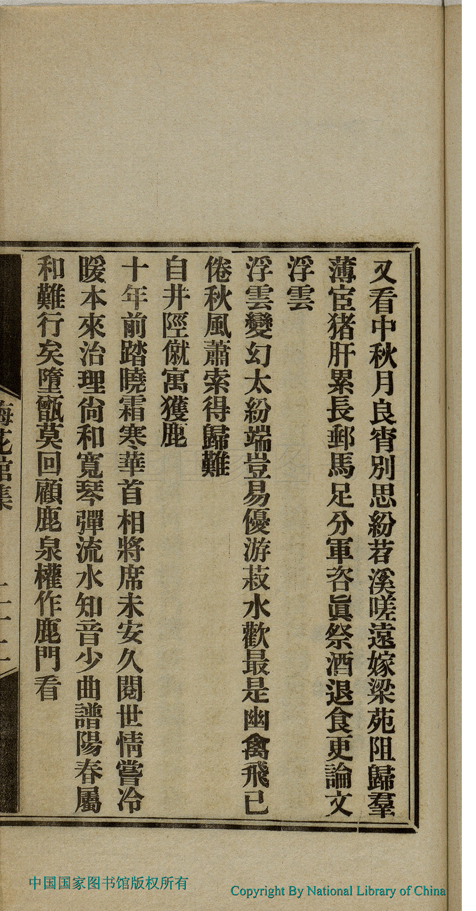 又看中秋月良宵別思紛苕溪嗟遠嫁梁苑阻歸羣
薄宦猪肝累長郵馬足分軍咨眞祭酒退食更論文
浮雲
浮雲變幻太紛端豈易優游菽水歡最是幽禽飛已
倦秋風蕭索得歸難
自井陘僦寓獲鹿
十年前踏曉霜寒華首相將席未安久閱世情嘗冷
暖本來治理尙和寬琴彈流水知音少曲譜陽春屬
和難行矣墮甑莫回顧鹿泉權作鹿門看
梅花館集
中国国家图书馆版权所有
Copyright By National Library of China